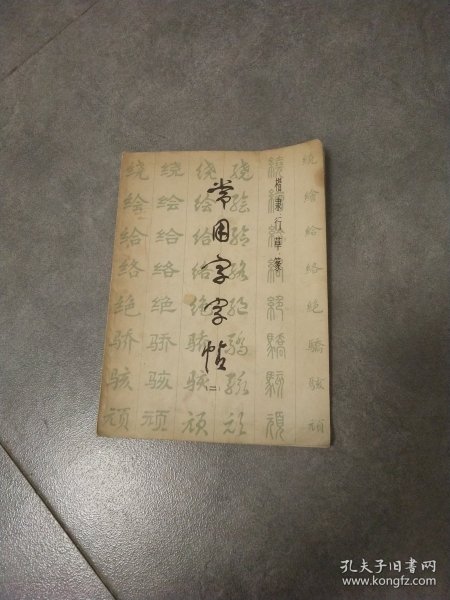 繞繪給絡絕驕駭頑
楷隶行草篆
繞繪給絡絕驕駭頑
绕绘给络绝骄骇顽
绕绘给络绝骄骇顽
常用字字帖
(二)
绕绘给络绝骄骇顽
绕绘给络绝骄骇顽
孔夫子旧书网
www.kongfz.com